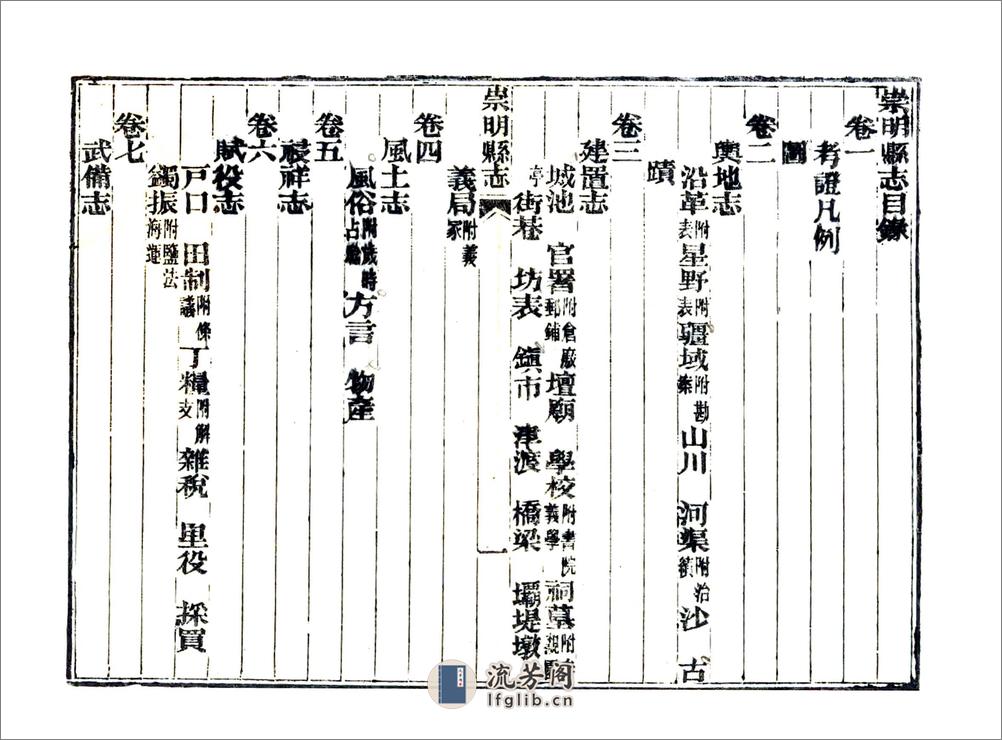 崇明縣志目錄
卷一
考證凡例
圖
卷二
輿地志
沿革附表 星野附表 疆域附勘案 山川 河渠附治績 沙 古
蹟
卷三
建置志
城池 官署附倉廠郵鋪 壇廟 學校附書院義學 祠墓附
亭 街巷 坊表 鎮市 津渡 橋梁 壩堤墩
崇明縣志
義局附義冢
卷四
風土志
風俗附歲時占驗 方言 物產
卷五
祲祥志
卷六
賦役志
戶口 田制附條議 丁糧附解支 雜稅 里役 採買
蠲振附鹽法海運
卷七
武備志
流芳閣
lfglib.cn